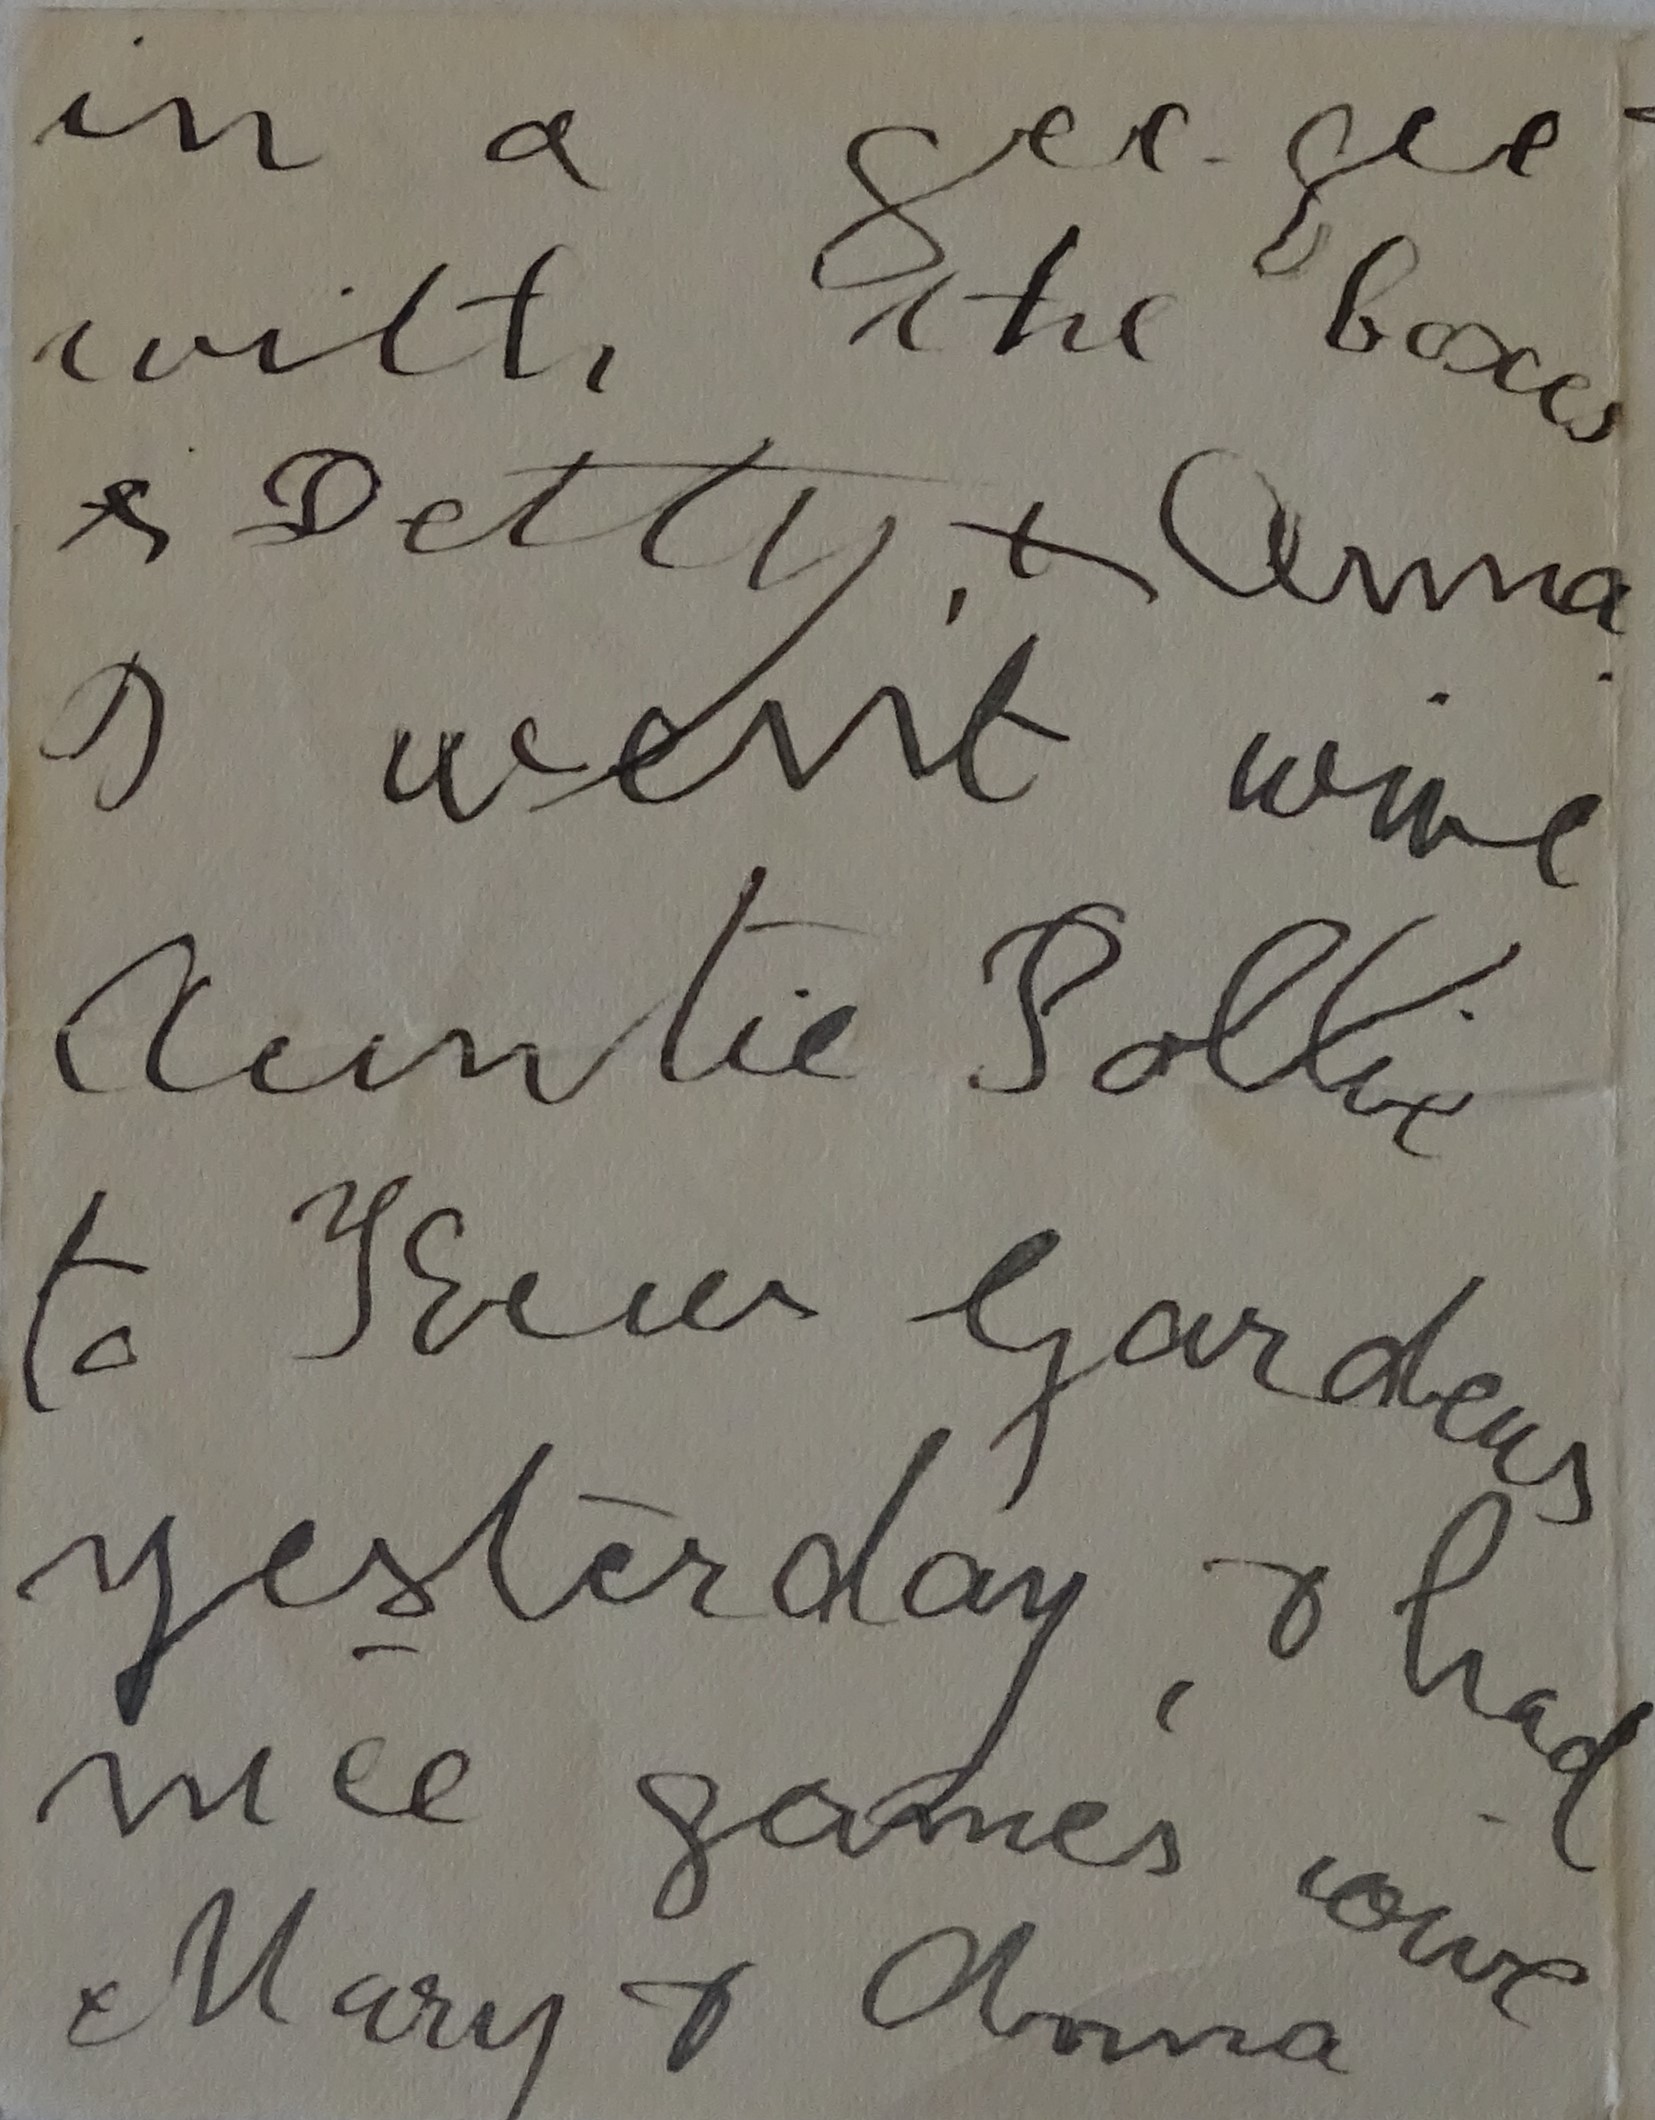 in a gee-gee
with the boxes
& Detty, & Anna.
I went wive
Auntie Pollie
to Kew Gardens
yesterday, & had
nice games wive
Mary & Anna